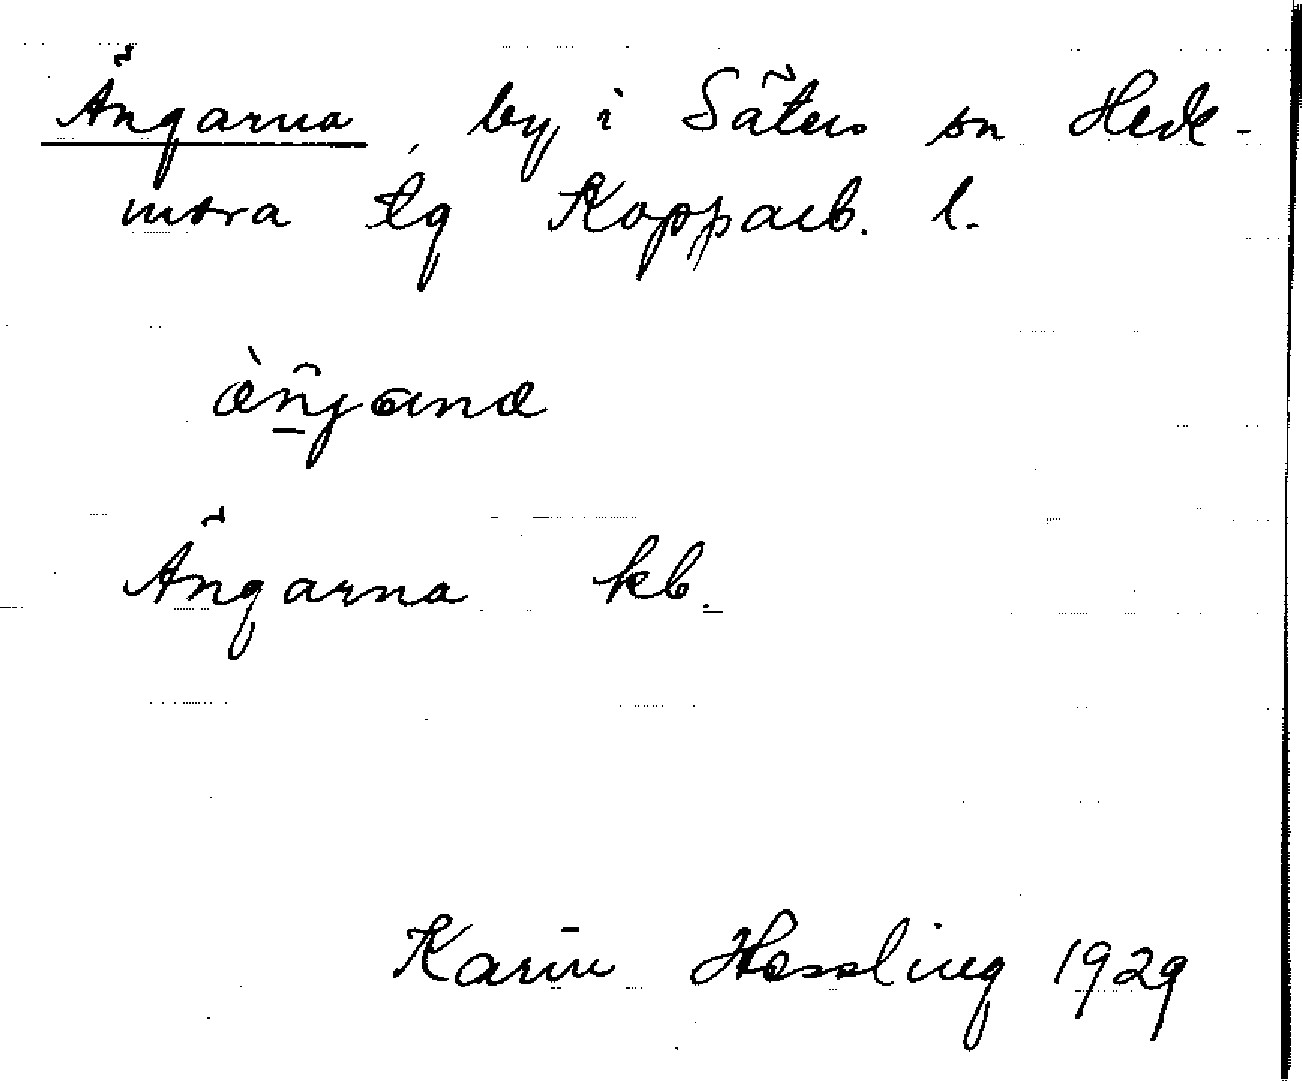 Ängarna, by i Säters sn Hed-
mora tg Kopparb. l.
Ängarna kb.
Karin Hessling 1929